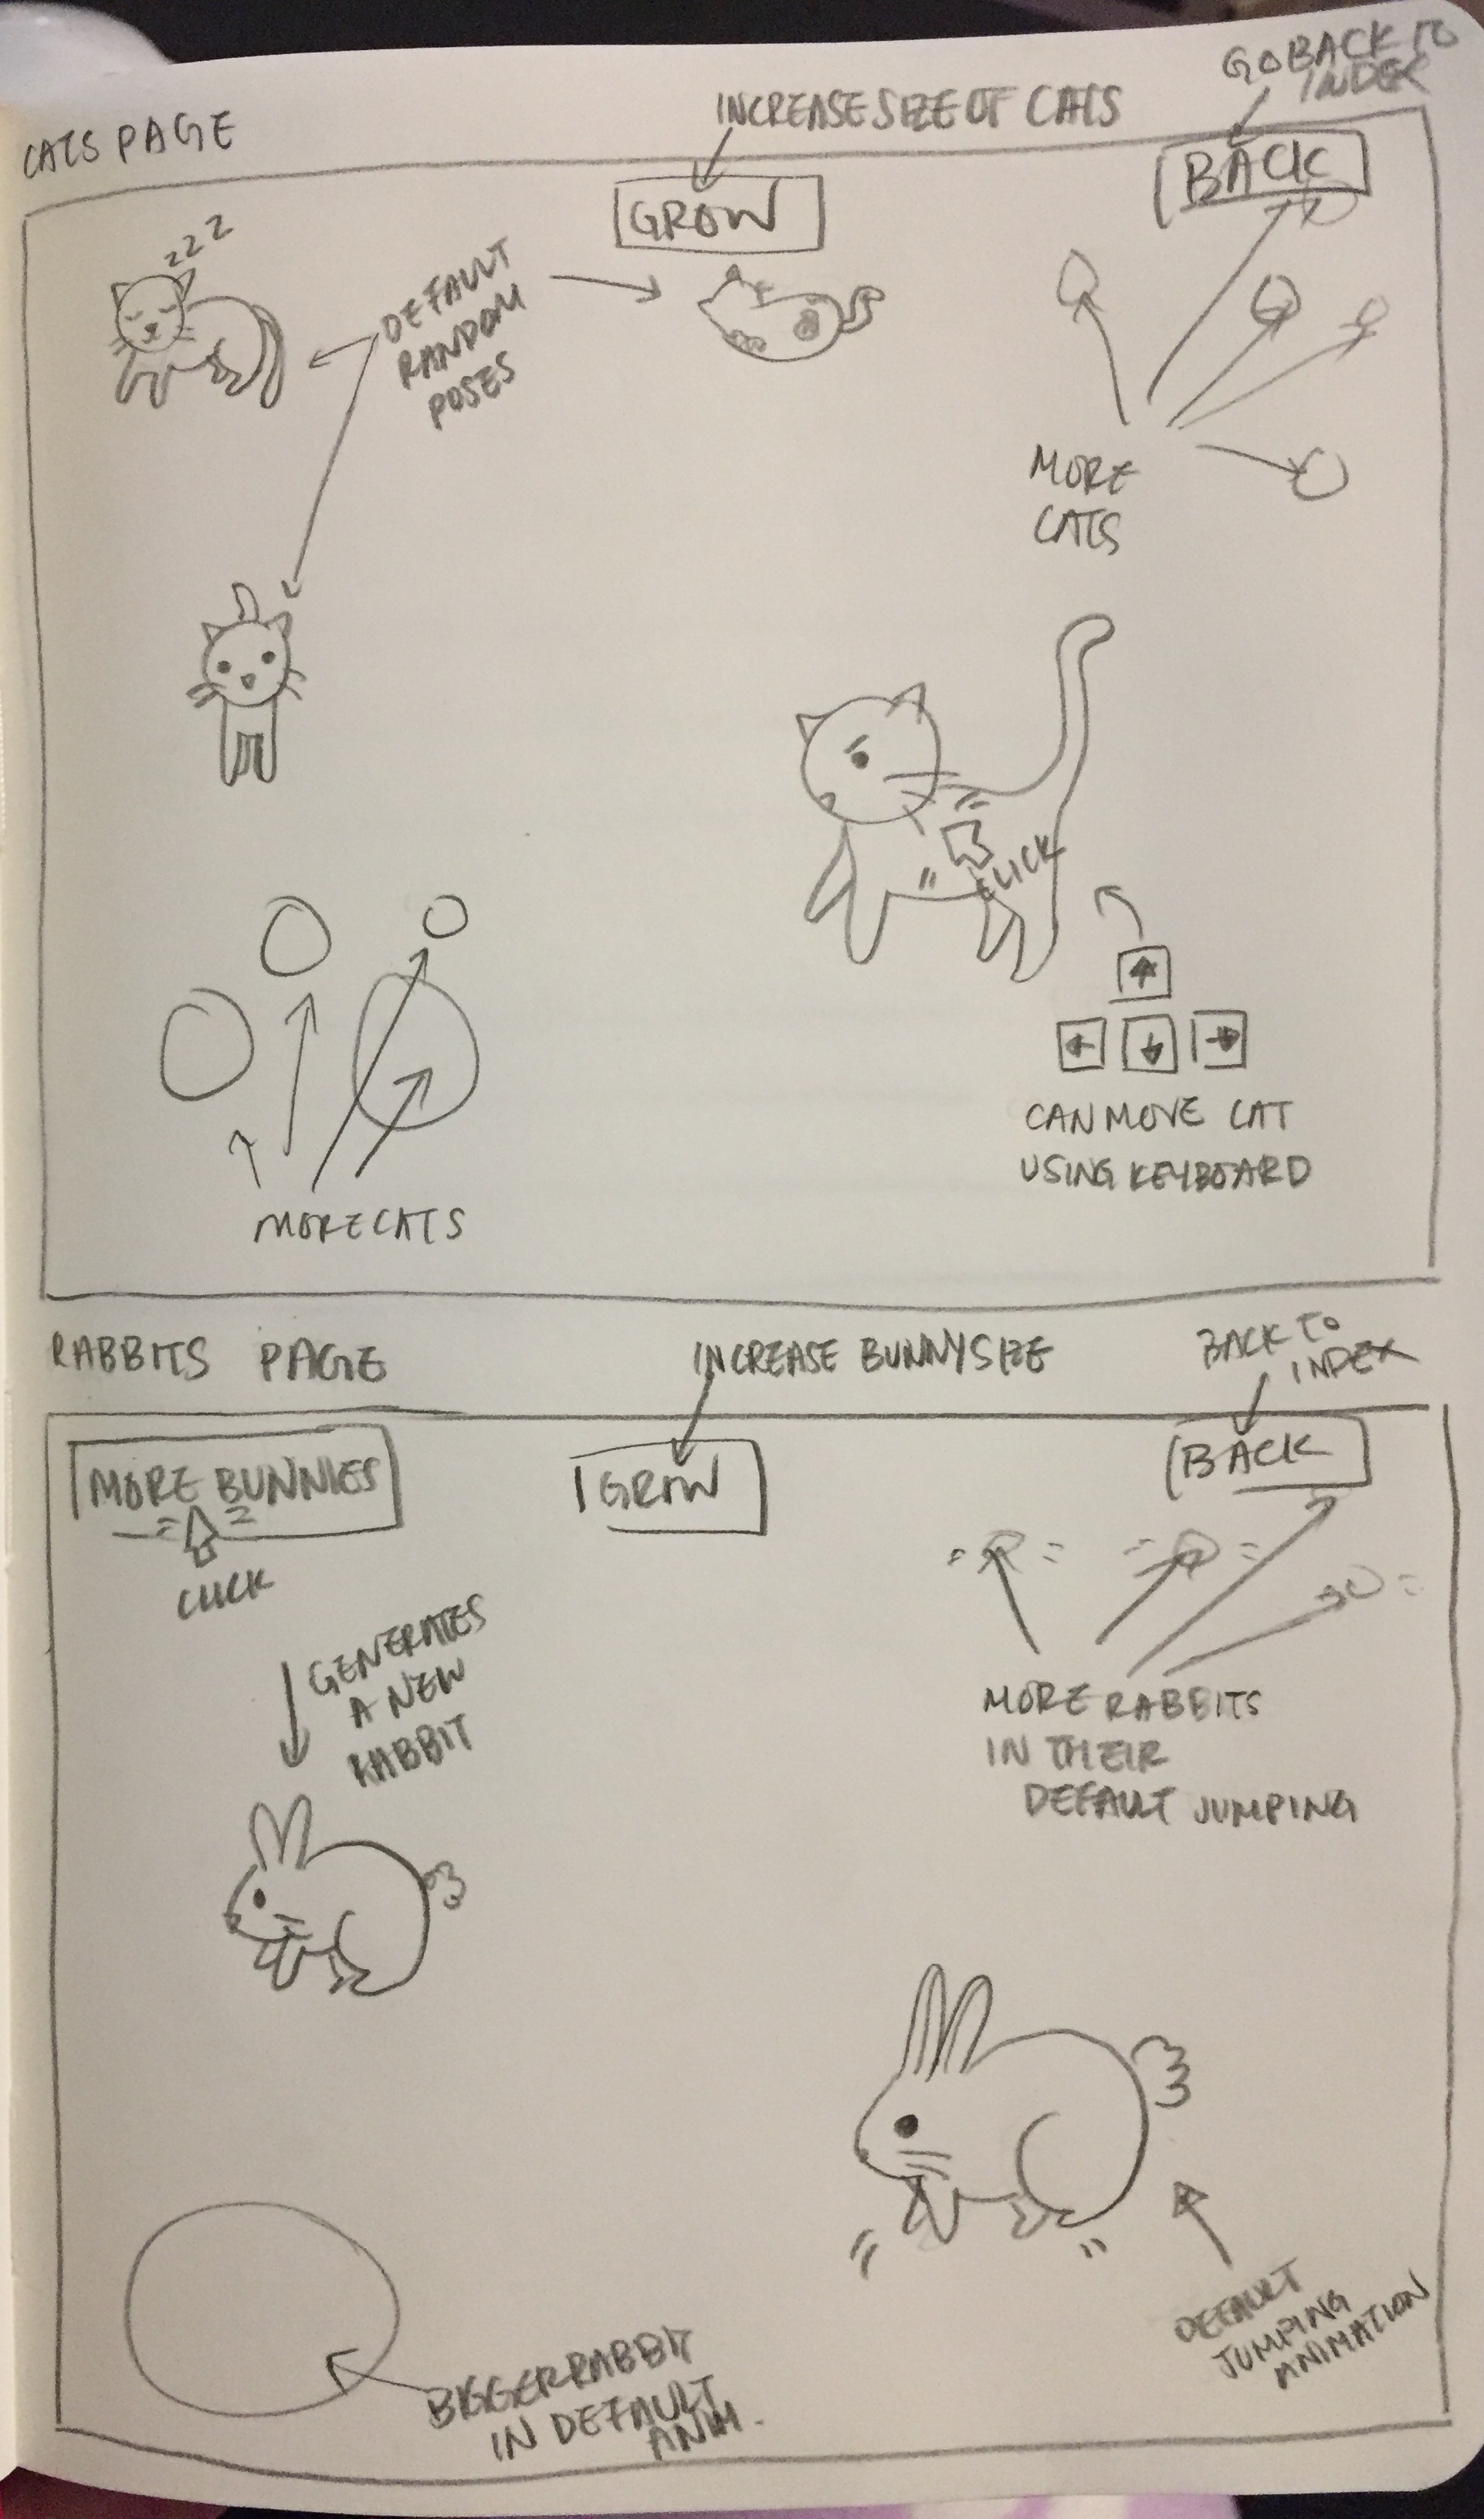 GO BACK TO
INDEX
INCREASE SIZE OF CATS
CATS PAGE
BACK
GROW
zzz
DEFAULT
RANDOM
POSES
MORE
CATS
CLICK
CAN MOVE CAT
USING KEYBOARD
MORE CATS
RABBITS PAGE
INCREASE BUNNY SIZE
BACK TO
INDEX
MORE BUNNIES
GROW
BACK
CLICK
GENERATES
A NEW
RABBIT
MORE RABBITS
IN THEIR
DEFAULT JUMPING
DEFAULT
JUMPING
ANIMATION
BIGGER RABBIT
IN DEFAULT
ANIM.